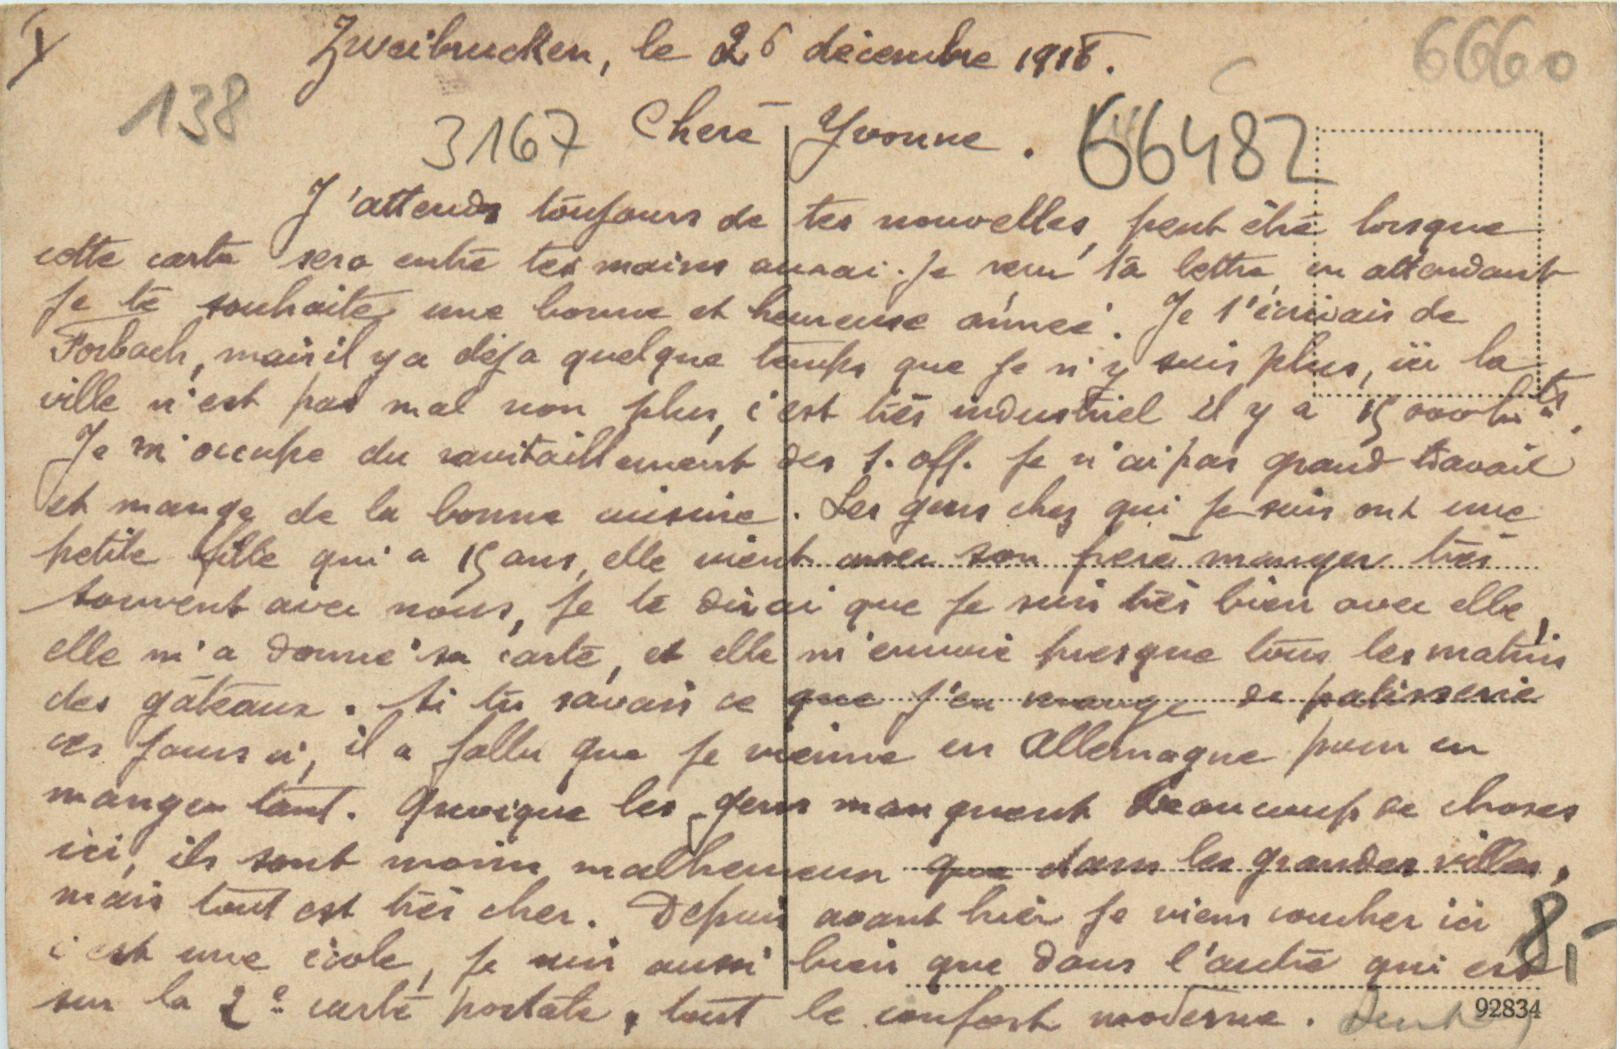 Zweibrucken, le 26 décembre 1918.
6660
138
3167
Chère Yvonne.
66482
J'attends toujours de tes nouvelles, peut être lorsque
cette carte sera entre tes mains aurai-je reçu ta lettre, en attendant
je te souhaite une bonne et heureuse année. Je t'écrivais de
Forbach, mais il y a déja quelque temps que je n'y suis plus, ici la
ville n'est pas mal non plus, c'est très industriel il y a 15000 hts.
Je m'occupe du ravitaillement des s. off. je n'ai pas grand travail
et mange de la bonne cuisine. Les gens chez qui je suis ont une
petite fille qui a 15 ans, elle vient avec son frère manger très
souvent avec nous, je te dirai que je suis très bien avec elle,
elle m'a donné sa carte, et elle m'envoie presque tous les matins
des gâteaux. Si tu savais ce que j'en mange de patisserie
ces jours ci, il a fallu que je vienne en Allemagne pour en
manger tant. Quoique les gens manquent beaucoup de choses
ici, ils sont moins malheureux que dans les grandes villes,
mais tout est très cher. Depuis avant hier je viens coucher ici
c'est une école, je suis aussi bien que dans l'autre qui est
8,-
sur la 2e carte postale, tout le confort moderne.
92834